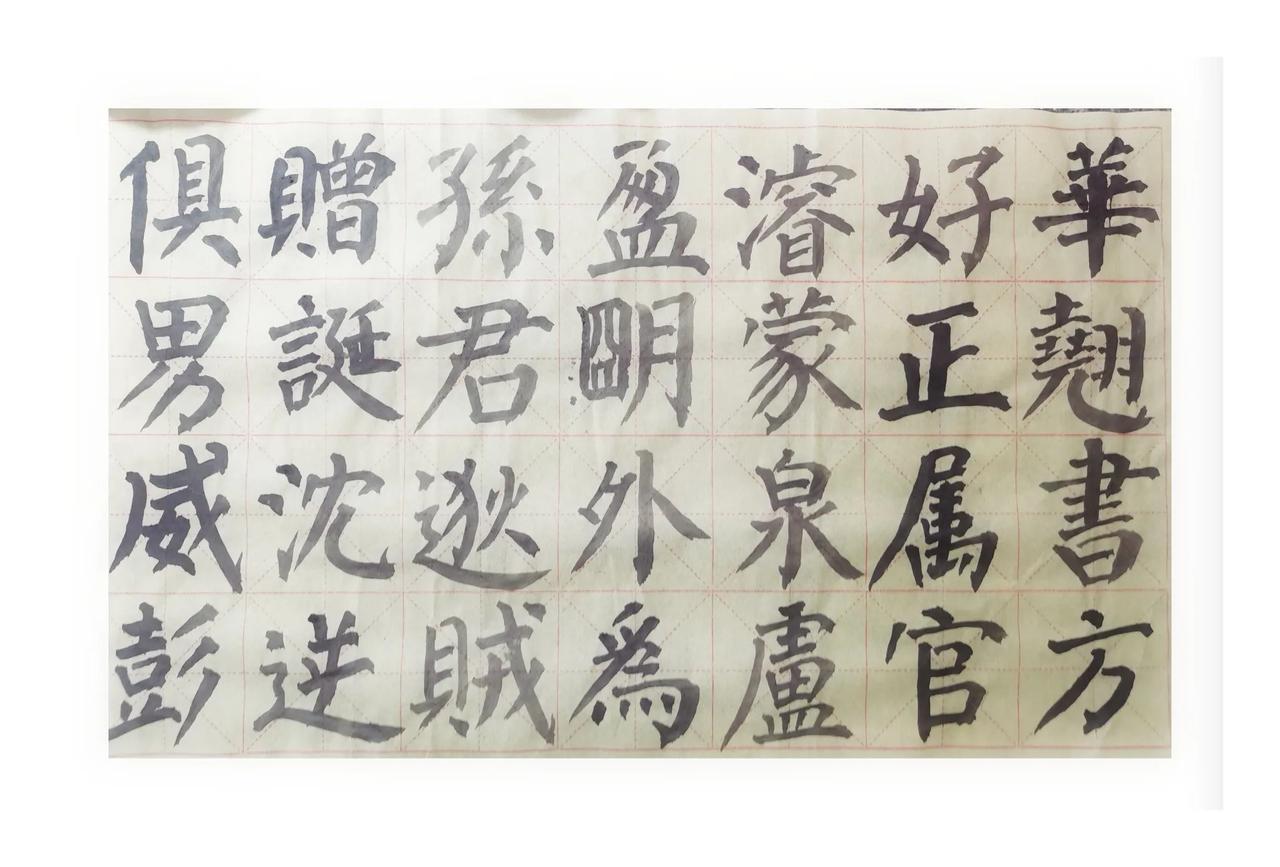 華翹書方
好正属官
濬蒙泉盧
盈朙外為
孫君逖賊
贈誕沈逆
俱男威彭